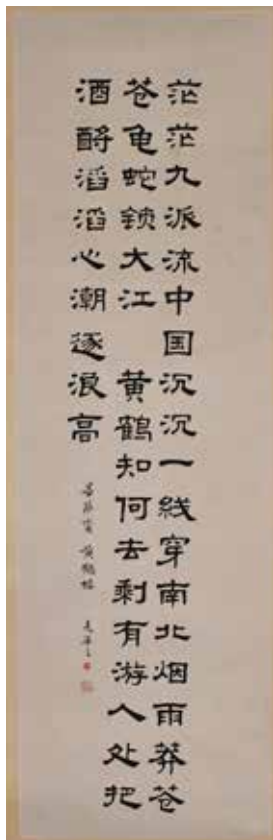 茫茫九派流中国沉沉一线穿南北烟雨莽苍
苍龟蛇锁大江 黄鹤知何去剩有游人处把
酒酹滔滔心潮逐浪高
菩萨蛮 黄鹤楼